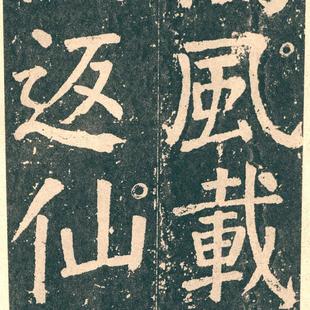 風載
返仙